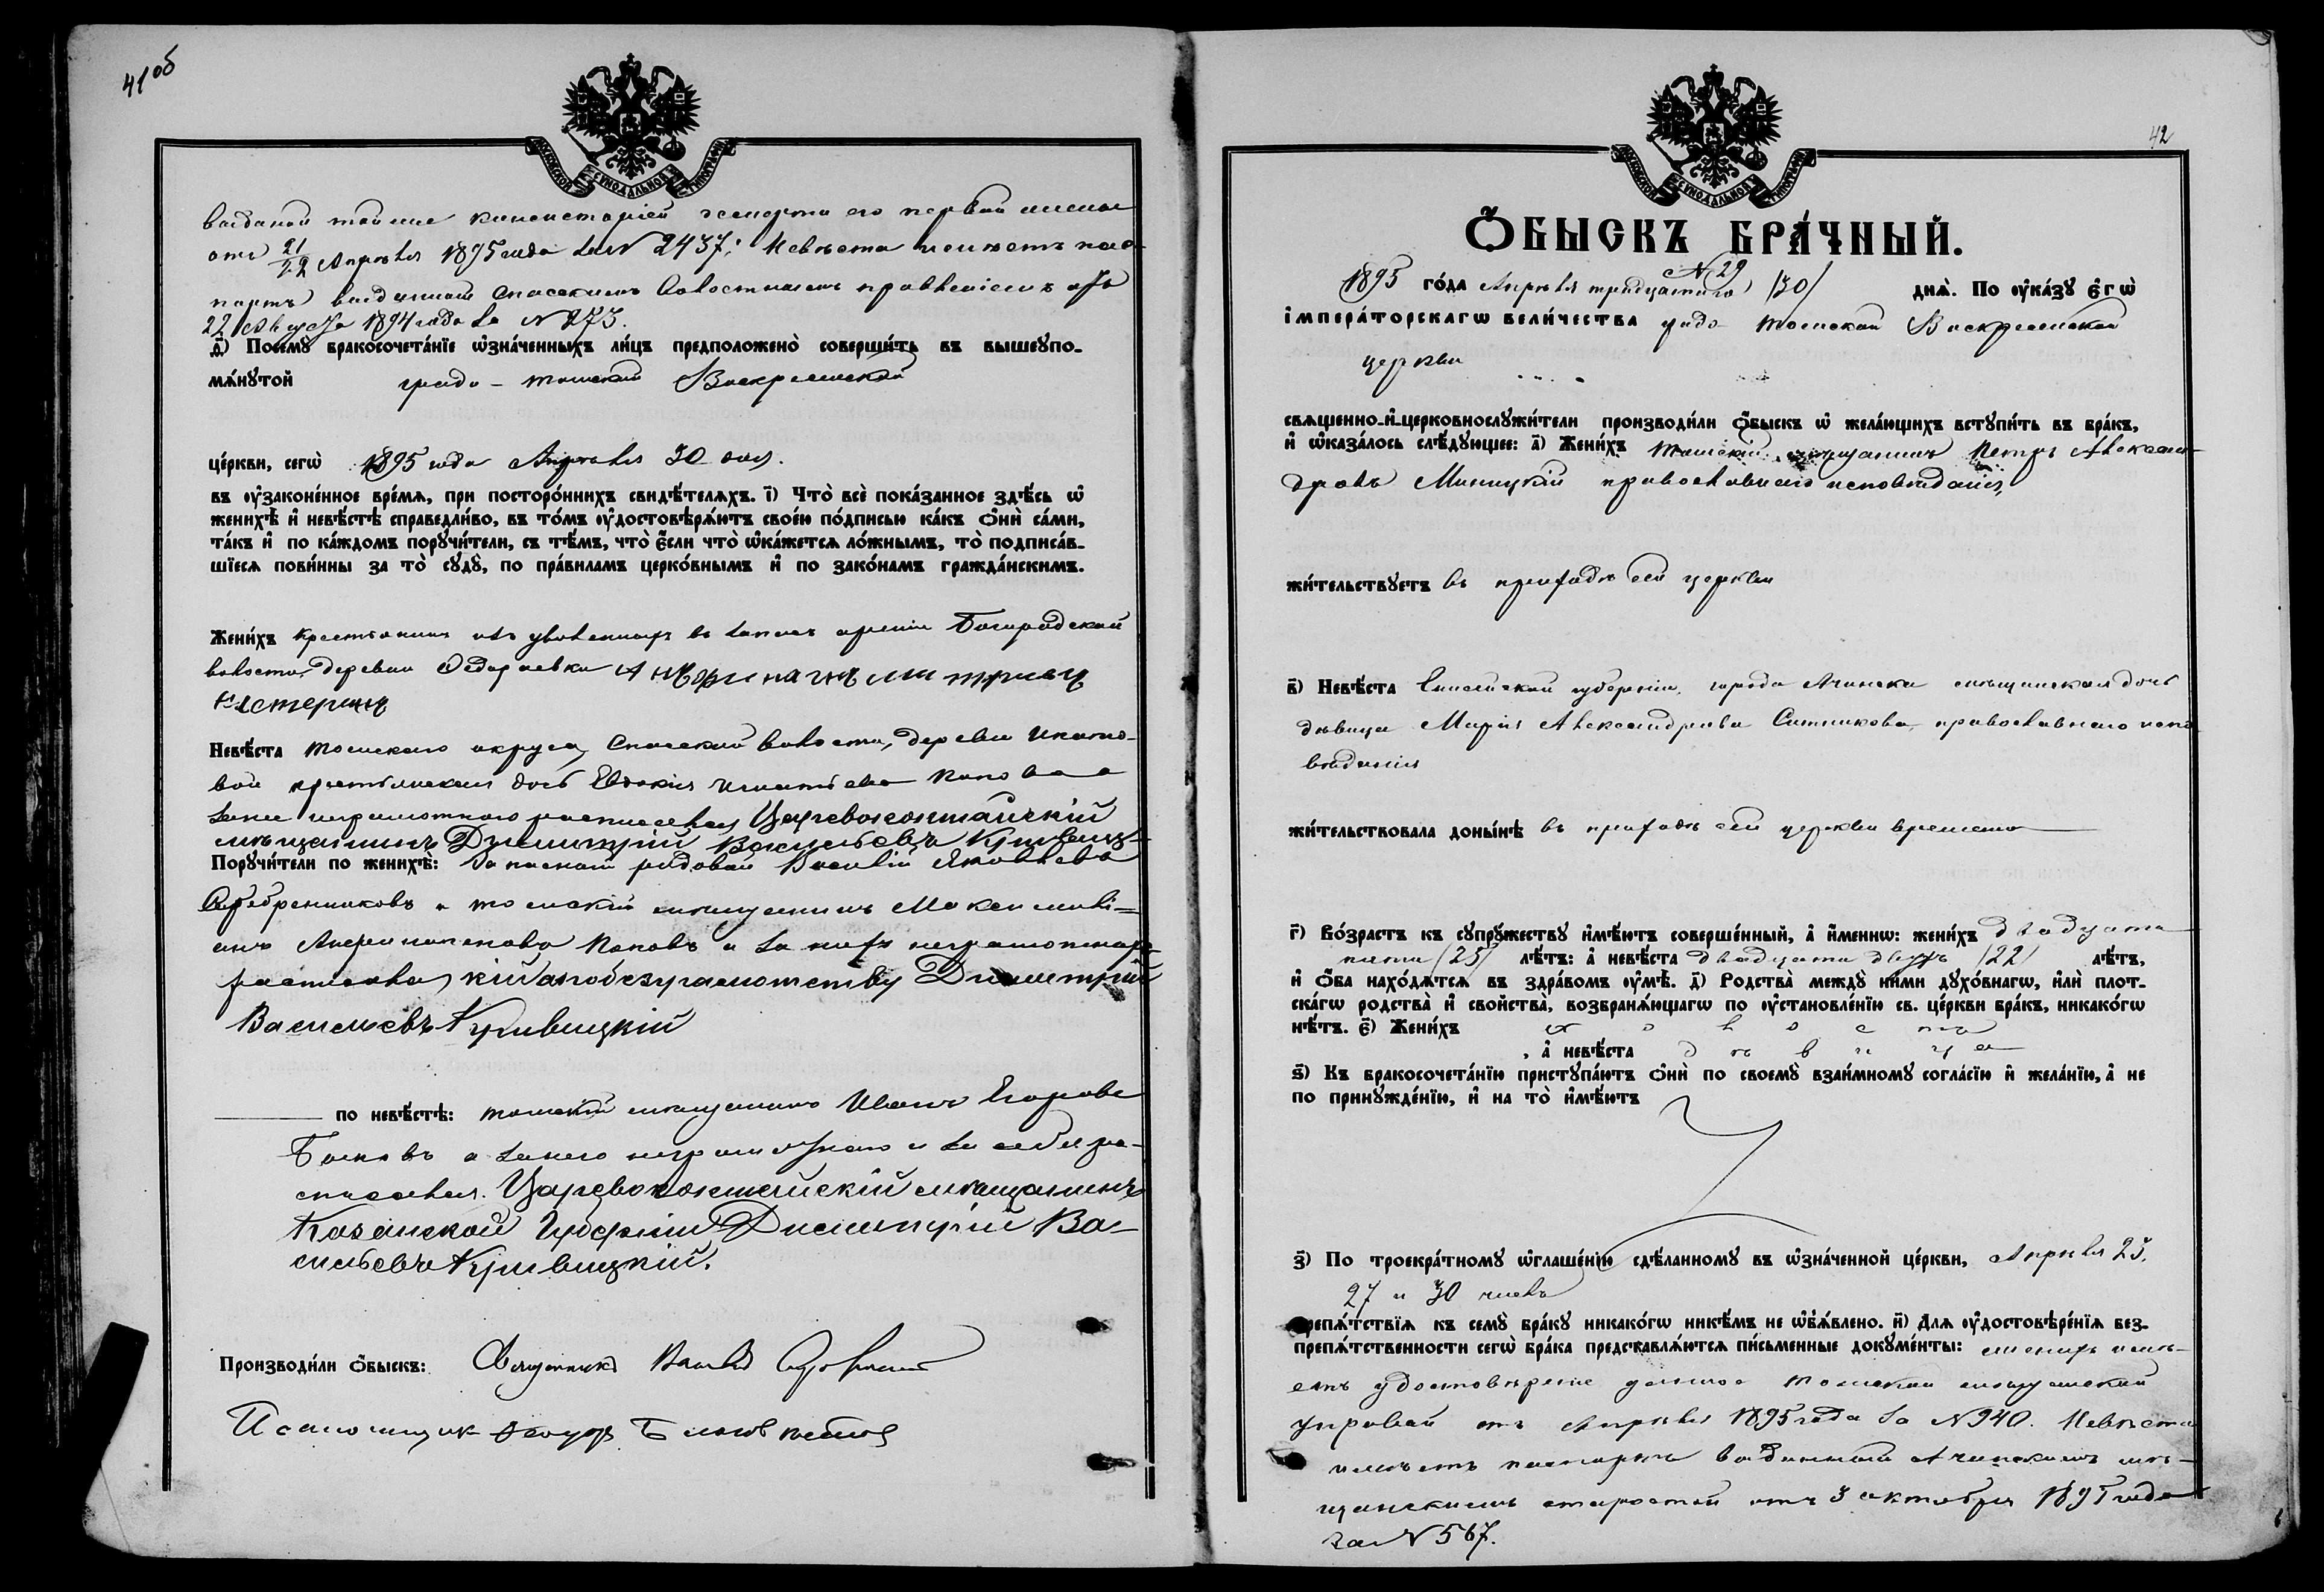 41об
МОСКОВСКОЙ СѴНОДАЛЬНОЙ ТИПОГРАФІИ
выданой тойже консисторіей
отъ 21/22 Апрѣля 1895 года за N 2437; Невѣста имѣетъ пас-
портъ выданный Спасскимъ Волостнымъ правленіемъ отъ
22 Августа 1894 года за N 273.
Ѳ҃) Посемꙋ̀ бракосочета́нїе ѡ҆зна́ченныхъ ли́цъ предположено̀ соверши́ть въ вышеꙋпо-
мѧ́нꙋтой градо-Томской Воскресенской
це́ркви, сегѡ̀ 1895 года Апрѣля 30 дня.
въ ᲂу҆законе́нное вре́мѧ, при посторо́ннихъ свидѣ́телѧхъ. І҃) Что̀ всѐ пока́занное здѣ́сь ѡ҆
женихѣ̀ и҆ невѣ́стѣ справедли́во, въ то́мъ ᲂу҆достовѣрѧ́ютъ свое́ю по́дписью ка́къ ѻ҆нѝ са́ми,
та́къ и҆ по ка́ждомъ порꙋчи́тели, съ тѣ́мъ, что̀ є҆́сли что̀ ѡ҆ка́жетсѧ ло́жнымъ, то̀ подписа́в-
шїесѧ пови́нны за то̀ сꙋдꙋ̀, по пра́виламъ церко́внымъ и҆ по зако́намъ гражда́нскимъ.
Жени́хъ крестьянинъ изъ уволенныхъ въ запасъ арміи Богородской
волости, деревни Ѳедораевки
Нестеринъ
Невѣ́ста Томскаго округа, Спасской волости, деревни
вой крестьянская дочь Евдокія Игнатьева Попова а
за нее неграмотную росписался Царевококшайскій
мѣщанинъ Димитрій Васильевъ Кривицкій
Порꙋчи́тели по женихѣ̀: Запасной рядовой Василій Яковлевъ
Серебренниковъ и томскій мѣщанинъ Максимилі=
анъ Поповъ а за нихъ неграмотныхъ
росписался по безграмотству Димитрій
Васильевъ Кривицкій
по невѣ́стѣ: томскій мѣщанинъ Иванъ Егоровъ
а за него неграмотнаго и за себя ро-
списался. Царевококшайскій мѣщанинъ
Казанской Губерніи Димитрій Ва-
сильевъ Кривицкій.
Производи́ли ѻ҆́быскъ: Священникъ
Псаломщикъ
42
МОСКОВСКОЙ СѴНОДАЛЬНОЙ ТИПОГРАФІИ
Ѻ҆́БЫСКЪ БРА́ЧНЫЙ.
N 29
1895 го́да Апрѣля тридцатаго /30/ днѧ̀. По ᲂу҆ка́зꙋ є҆гѡ̀
і҆мпера́торскагѡ вели́чества градо-Томской Воскресенской
церкви
свѧщенно-и҆-церковнослꙋжи́тели производи́ли ѻ҆́быскъ ѡ҆ жела́ющихъ встꙋпи́ть въ бра́къ,
и҆ ѡ҆каза́лось слѣ́дꙋющее: а҃) Жени́хъ Томскій мѣщанинъ Петръ Алексан-
дровъ Миницкій православнаго исповѣданія,
жи́тельствꙋетъ въ приходѣ сей церкви
в҃) Невѣ́ста Енисейской губерніи, города Ачинска мѣщанская дочь
дѣвица Марія Александрова Ситникова, православнаго испо-
вѣданія
жи́тельствовала доны́нѣ въ приходѣ сей церкви временно
г҃) Во́зрастъ къ сꙋпрꙋ́жествꙋ и҆мѣ́ютъ соверше́нный, а҆ и҆́меннѡ: жени́хъ двадцати
пяти /25/ лѣ́тъ: а҆ невѣ́ста двадцати двухъ /22/ лѣ́тъ,
и҆ ѻ҆́ба нахо́дѧтсѧ въ здра́вомъ ᲂу҆мѣ̀. д҃) Родства̀ междꙋ̀ ни́ми дꙋхо́внагѡ, и҆лѝ плот-
ска́гѡ родства̀ и҆ свойства̀, возбранѧ́ющагѡ по ᲂу҆становле́нїю св. це́ркви бра́къ, никако́гѡ
нѣ́тъ. є҃) Жени́хъ холостъ
, а҆ невѣ́ста дѣвица
ѕ҃) Къ бракосочета́нїю пристꙋпа́ютъ ѻ҆нѝ по своемꙋ̀ взаи́мномꙋ согла́сїю и҆ жела́нїю, а҆ не
по принꙋжде́нїю, и҆ на то̀ и҆мѣ́ютъ
з҃) По троекра́тномꙋ ѡ҆глаше́нїю сдѣ́ланномꙋ въ ѡ҆зна́ченной це́ркви, Апрѣля 23,
27 и 30 числъ
препѧ́тствїѧ къ семꙋ̀ бра́кꙋ никако́гѡ никѣ́мъ не ѡ҆б̾ѧ́влено. и҃) Длѧ ᲂу҆достовѣре́нїѧ без-
препѧ́тственности сегѡ̀ бра́ка представлѧ́ютсѧ пи́сьменные докꙋме́нты: женихъ имѣ-
етъ удостовѣреніе данное Томской мѣщанской
управой отъ Апрѣля 1895 года за N 940. Невѣста
имѣетъ паспортъ выданный Ачинскимъ мѣ-
щанскимъ старостой отъ 3 октября 1895 года
за N 567.